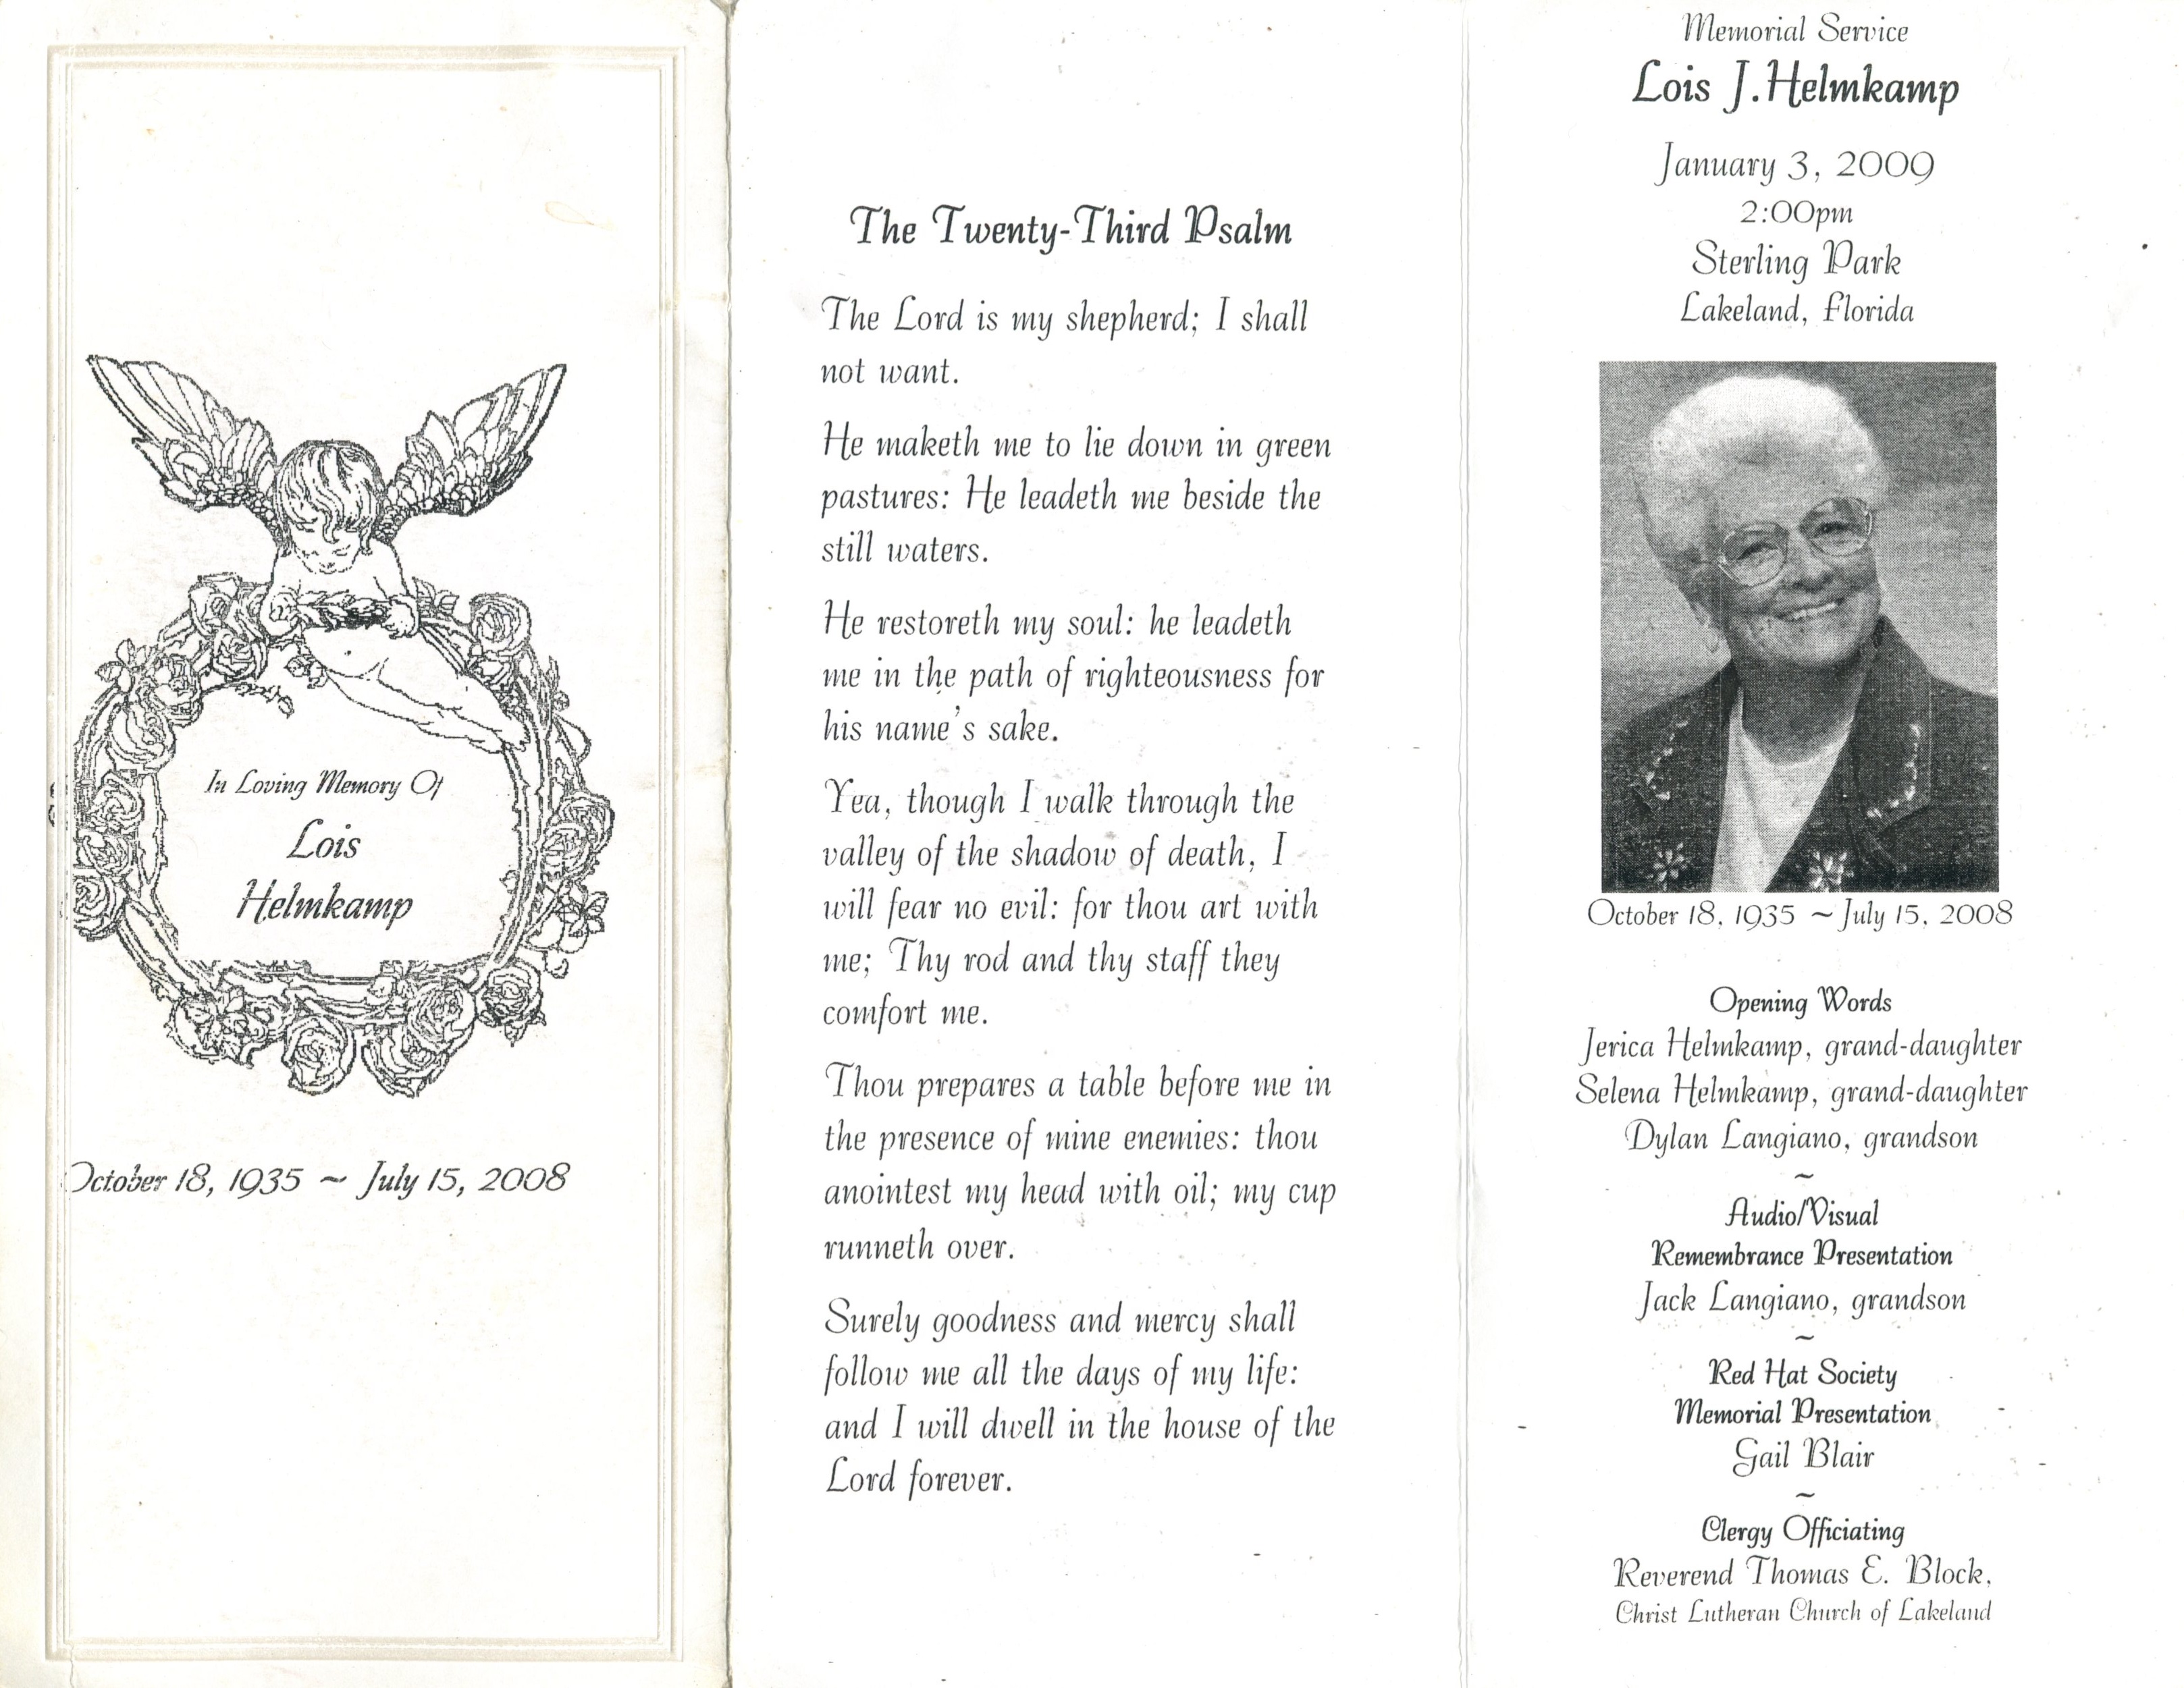 In Loving Memory Of
Lois
Helmkamp
October 18, 1935 ~ July 15, 2008
The Twenty-Third Psalm
The Lord is my shepherd; I shall
not want.
He maketh me to lie down in green
pastures: He leadeth me beside the
still waters.
He restoreth my soul: he leadeth
me in the path of righteousness for
his name's sake.
Yea, though I walk through the
valley of the shadow of death, I
will fear no evil: for thou art with
me; Thy rod and thy staff they
comfort me.
Thou prepares a table before me in
the presence of mine enemies: thou
anointest my head with oil; my cup
runneth over.
Surely goodness and mercy shall
follow me all the days of my life:
and I will dwell in the house of the
Lord forever.
Memorial Service
Lois J. Helmkamp
January 3, 2009
2:00pm
Sterling Park
Lakeland, Florida
October 18, 1935 ~ July 15, 2008
Opening Words
Jerica Helmkamp, grand-daughter
Selena Helmkamp, grand-daughter
Dylan Langiano, grandson
~
Audio/Visual
Remembrance Presentation
Jack Langiano, grandson
~
Red Hat Society
Memorial Presentation
Gail Blair
~
Clergy Officiating
Reverend Thomas E. Block,
Christ Lutheran Church of Lakeland